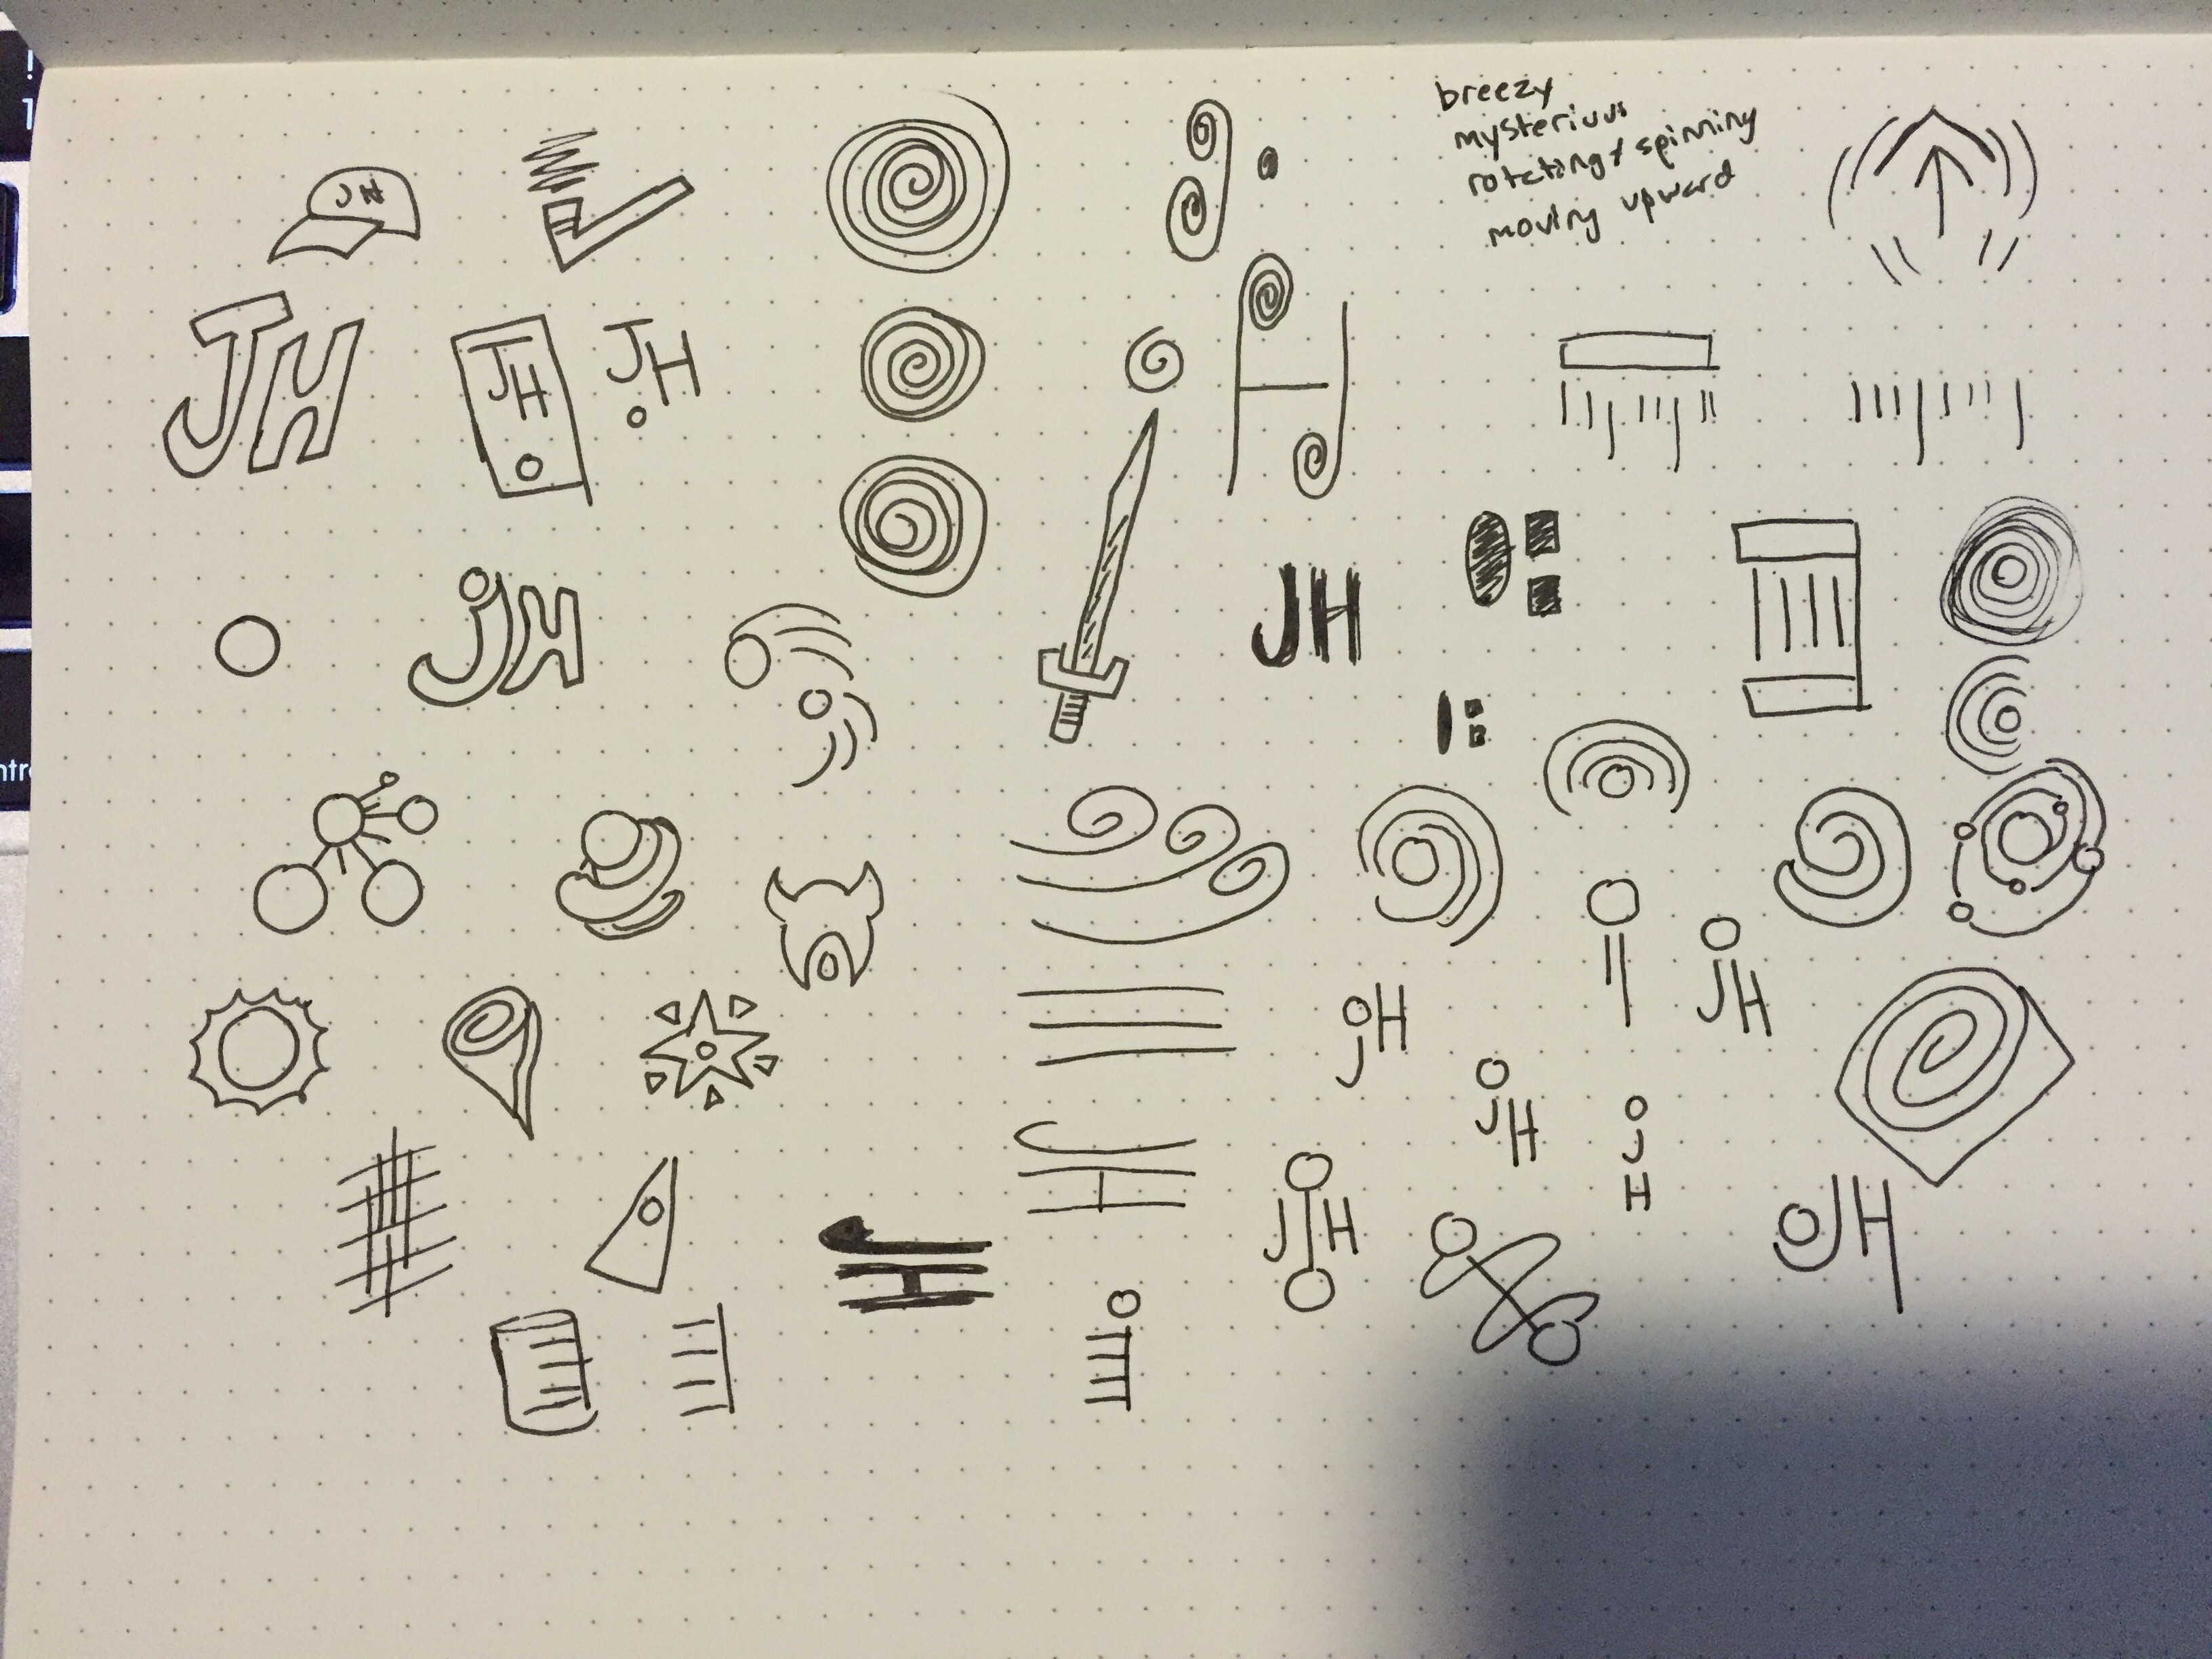 breezy
mysterious
rotating & spinning
moving upward
JH
JH
JH
JH
JH
JH
JH
JH
JH
JH
J
H
JH
JH